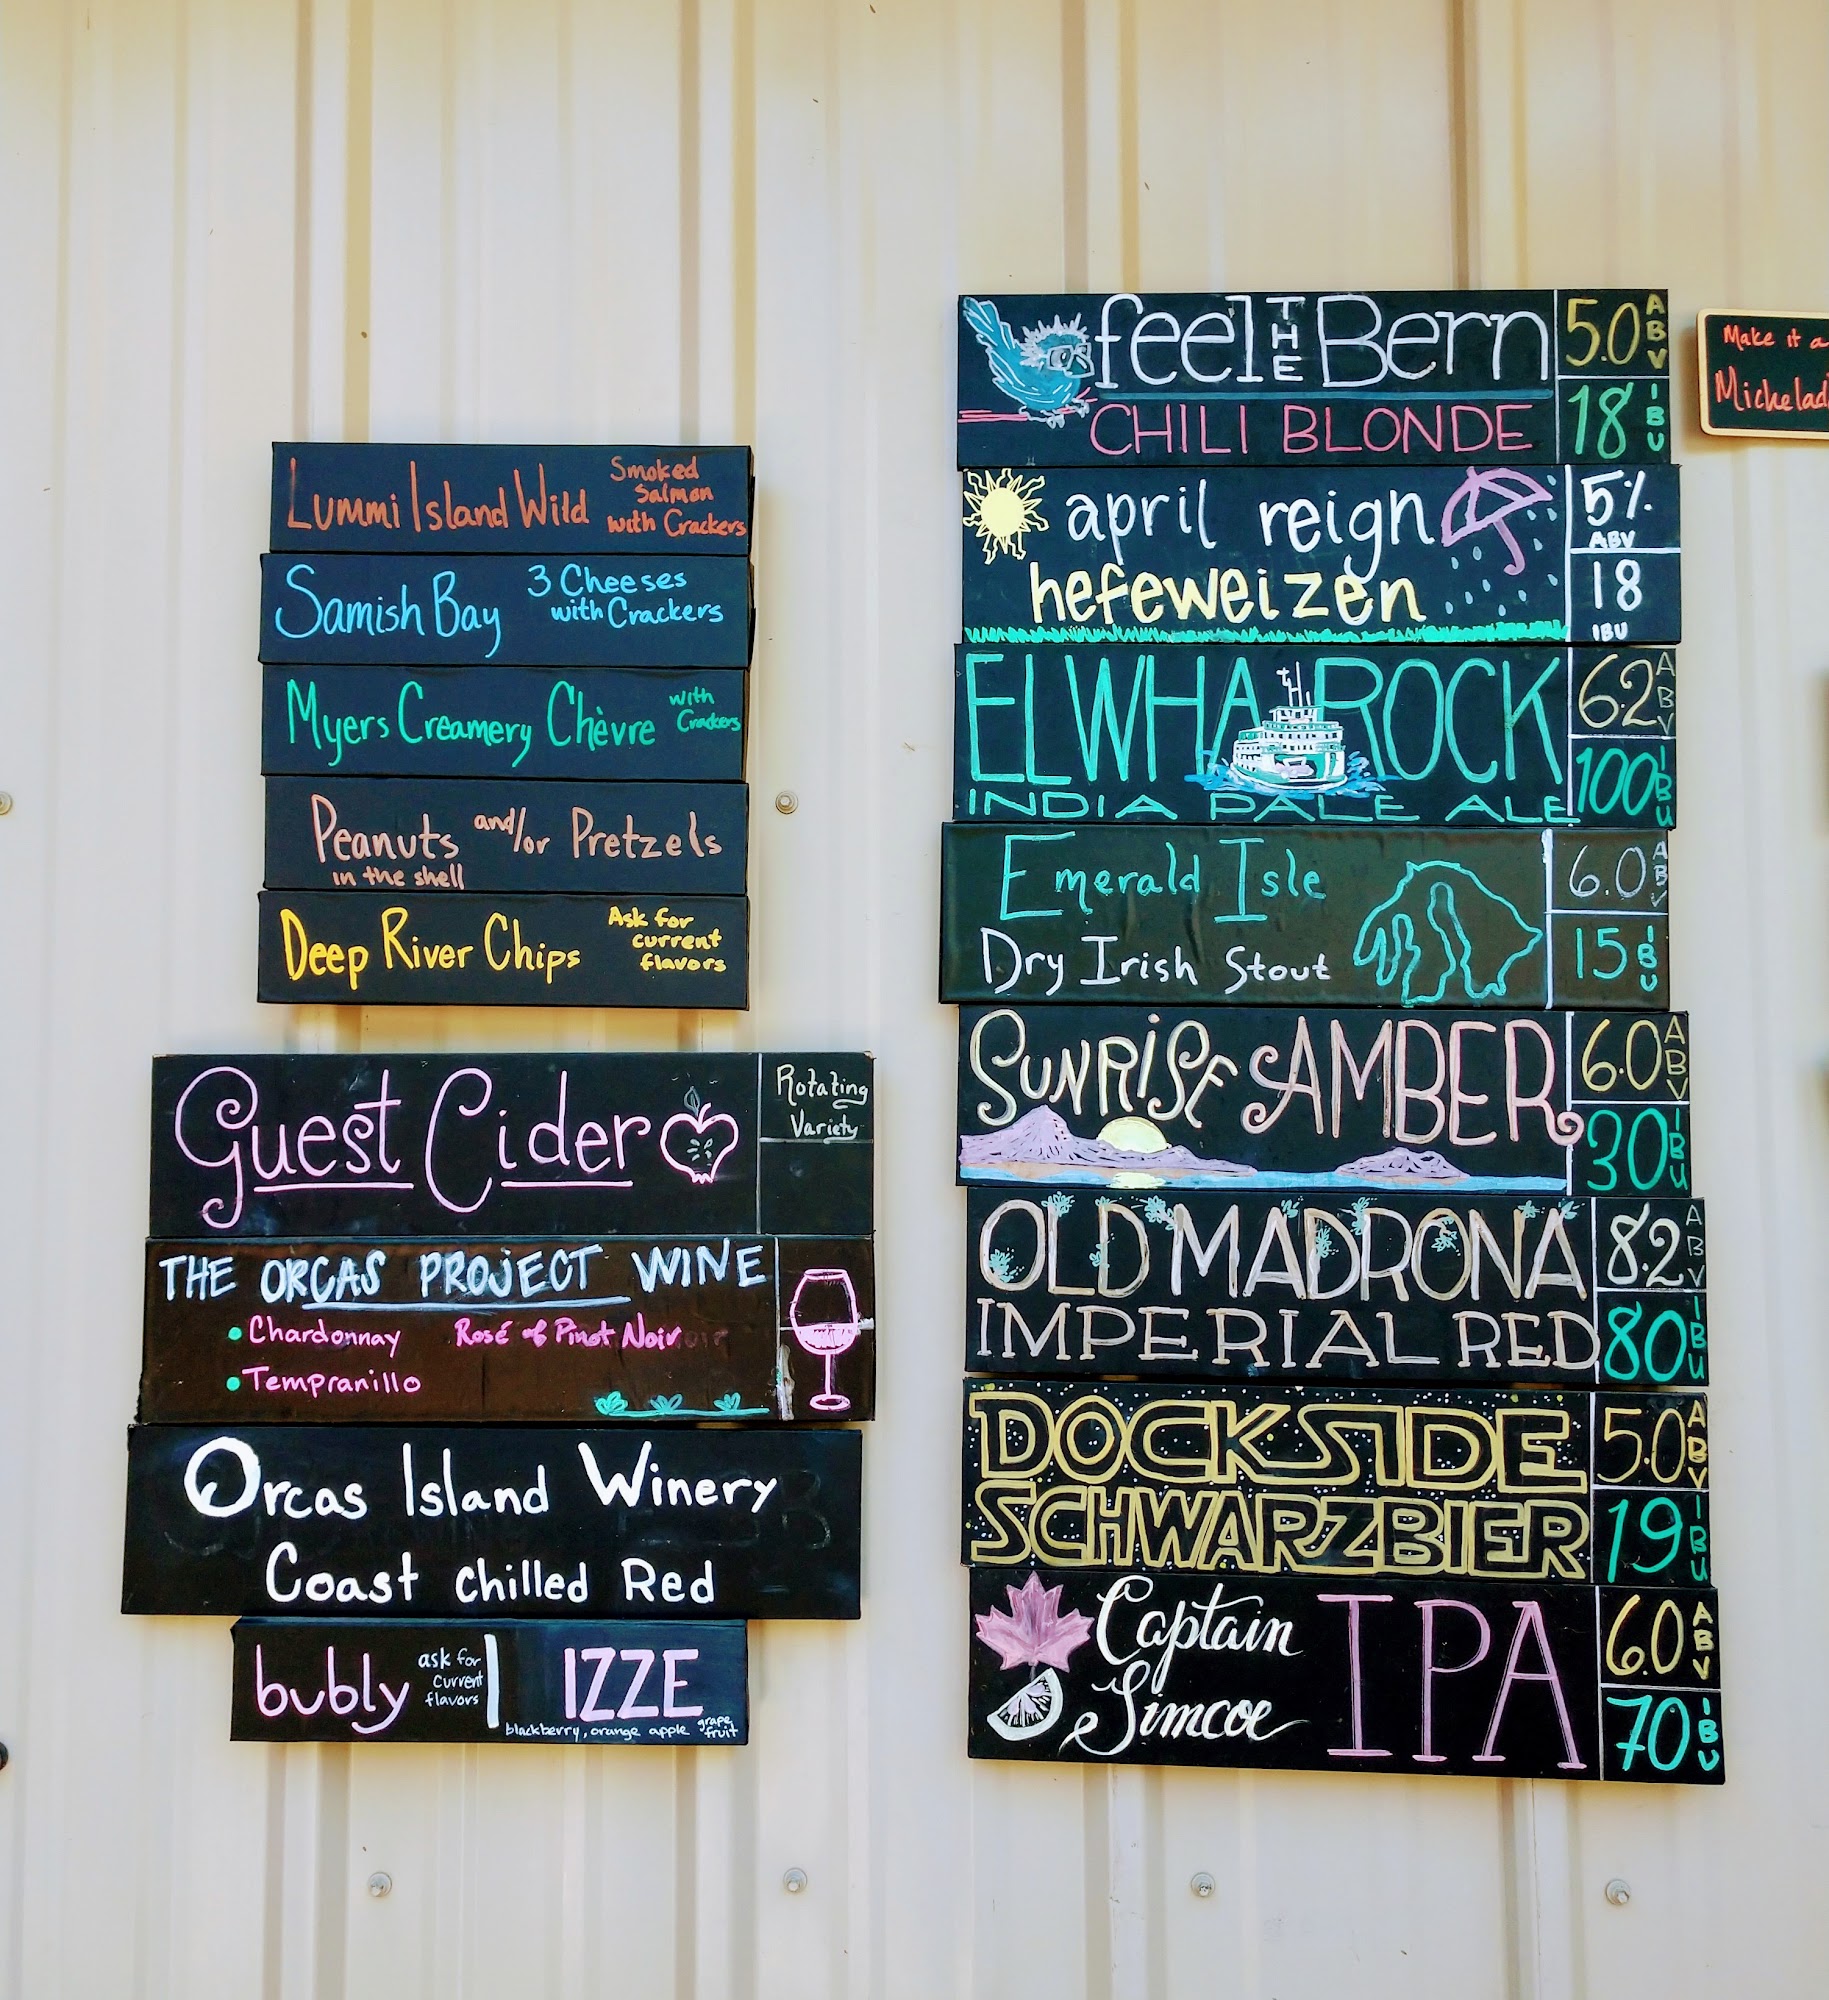 Lummi Island Wild
Smoked
Salmon
with Crackers
Samish Bay
3 Cheeses
with Crackers
Myers Creamery Chèvre
with
Crackers
Peanuts and/or Pretzels
in the shell
Deep River Chips
Ask for
current
flavors
Guest Cider
Rotating
Variety
THE ORCAS PROJECT WINE
• Chardonnay
Rosé of Pinot Noir
• Tempranillo
Orcas Island Winery
Coast chilled Red
bubly
ask for
current
flavors
IZZE
blackberry, orange apple grape
fruit
feel THE Bern
CHILI BLONDE
5.0 ABV
18 IBU
april reign
hefeweizen
5%
ABV
18
IBU
ELWHA ROCK
INDIA PALE ALE
6.2 ABV
100 IBU
Emerald Isle
Dry Irish Stout
6.0 ABV
15 IBU
SUNRISE AMBER
6.0 ABV
30 IBU
OLD MADRONA
IMPERIAL RED
8.2 ABV
80 IBU
DOCKSIDE
SCHWARZBIER
5.0 ABV
19 IBU
Captain
Simcoe
IPA
6.0 ABV
70 IBU
Make it a